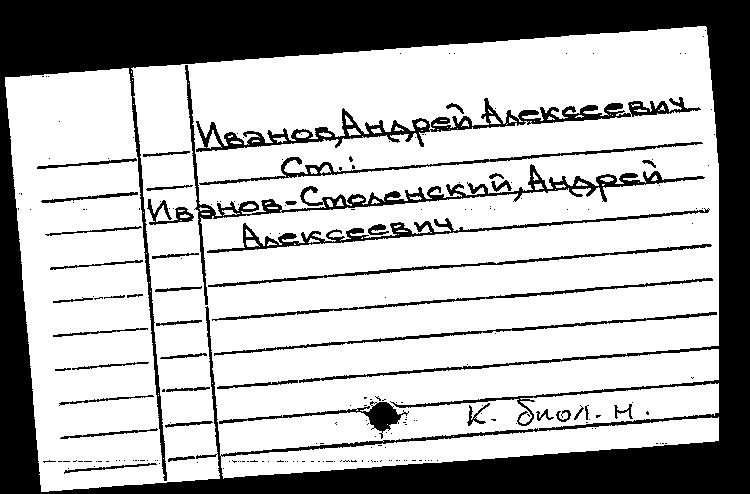 Иванов, Андрей Алексеевич
Ст.:
Иванов-Смоленский, Андрей
Алексеевич.
к. биол. н.